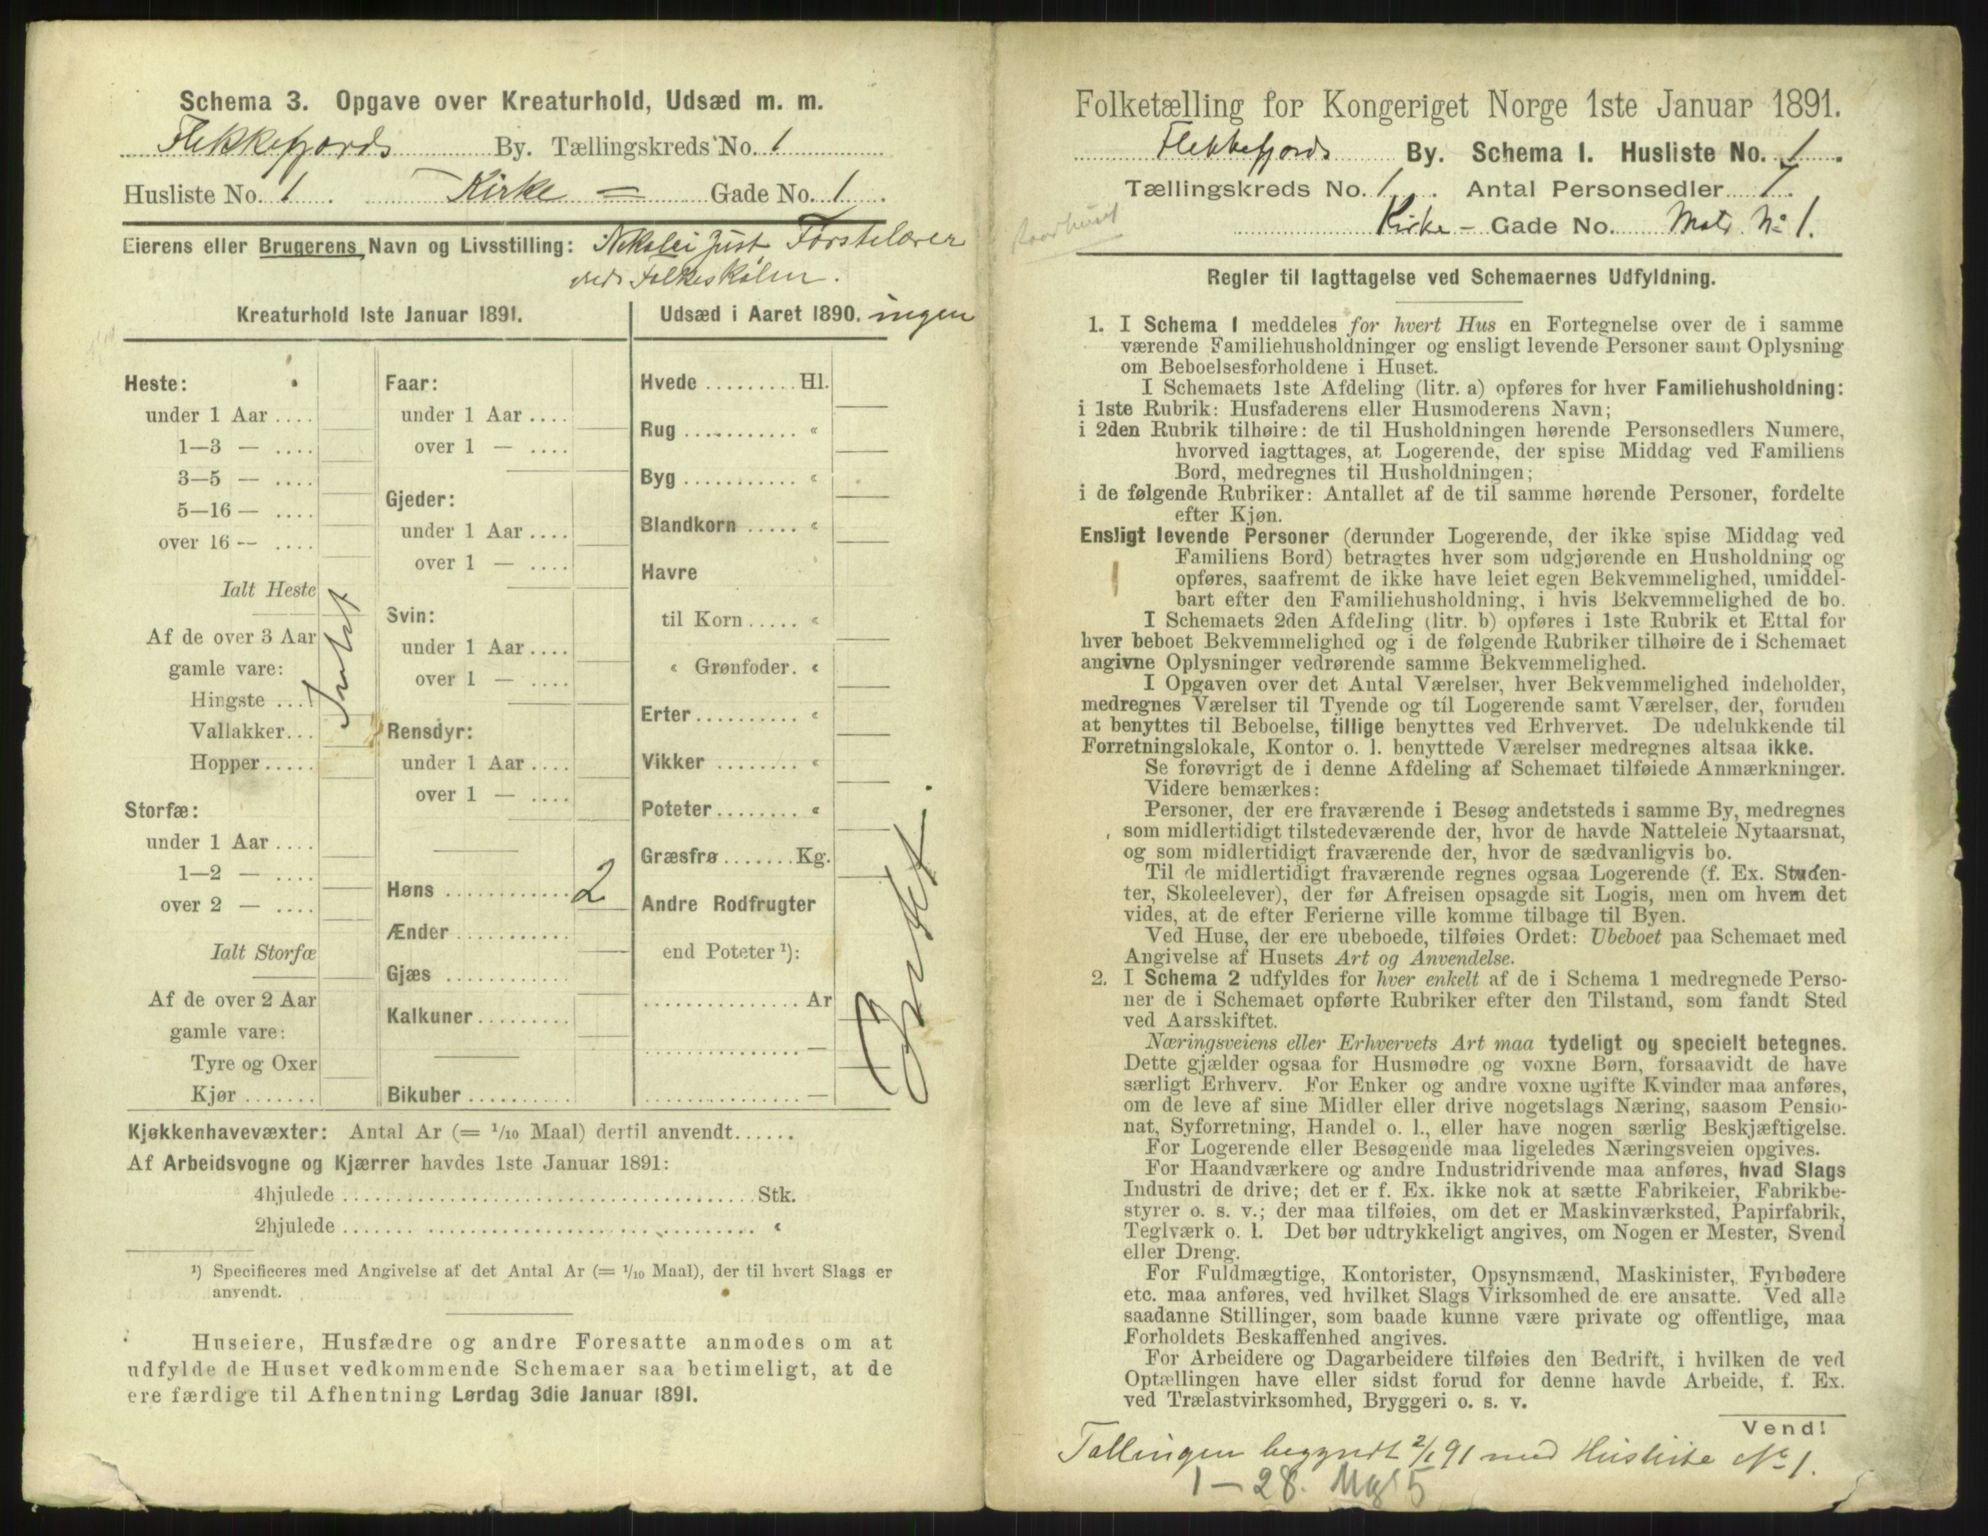 Schema 3. Opgave over Kreaturhold, Udsæd m. m.
Flekkefjords By. Tællingskreds No. 1
Husliste No. 1 Kirke = Gade No. 1.
Eierens eller Brugerens Navn og Livsstilling: Nikolei Just, Førstelærer
ved Folkeskolen.
Kreaturhold 1ste Januar 1891.
Heste:
under 1 Aar ....
1—3 — ....
3—5 — ....
5—16 — ....
over 16 -- ....
Ialt Heste
Af de over 3 Aar
gamle vare:
Hingste ....
Vallakker...
Hopper.....
Intet
Storfæ:
under 1 Aar ....
1—2 — ....
over 2 — ....
Ialt Storfæ
Af de over 2 Aar
gamle vare:
Tyre og Oxer
Kjør .......
Faar:
under 1 Aar ....
over 1 — ....
Gjeder:
under 1 Aar ....
over 1 — ....
Svin:
under 1 Aar ....
over 1 — ....
Rensdyr:
under 1 Aar ....
over 1 — ....
Høns ........... 2
Ænder ...........
Gjæs ...........
Kalkuner.........
Bikuber ..........
Udsæd i Aaret 1890. ingen
Hvede ......... Hl.
Rug ........... «
Byg ........... «
Blandkorn ..... «
Havre
til Korn ..... «
« Grønfoder. «
Erter.......... «
Vikker ........ «
Poteter........ «
Græsfrø ....... Kg.
Andre Rodfrugter
end Poteter ¹):
............... Ar
............... —
............... —
Intet.
Kjøkkenhavevæxter: Antal Ar (= 1/10 Maal) dertil anvendt......
Af Arbeidsvogne og Kjærrer havdes 1ste Januar 1891:
4hjulede ........................................ Stk.
2hjulede ........................................ «
¹) Specificeres med Angivelse af det Antal Ar (= 1/10 Maal), der til hvert Slags er
anvendt.
Huseiere, Husfædre og andre Foresatte anmodes om at
udfylde de Huset vedkommende Schemaer saa betimeligt, at de
ere færdige til Afhentning Lørdag 3die Januar 1891.
Folketælling for Kongeriget Norge 1ste Januar 1891.
Flekkefjords By. Schema 1. Husliste No. 1.
Tællingskreds No. 1. Antal Personsedler 7.
Kirke - Gade No. Matr. No 1.
Regler til Iagttagelse ved Schemaernes Udfyldning.
1. I Schema 1 meddeles for hvert Hus en Fortegnelse over de i samme
værende Familiehusholdninger og ensligt levende Personer samt Oplysning
om Beboelsesforholdene i Huset.
I Schemaets 1ste Afdeling (litr. a) opføres for hver Familiehusholdning:
i 1ste Rubrik: Husfaderens eller Husmoderens Navn;
i 2den Rubrik tilhøire: de til Husholdningen hørende Personsedlers Numere,
hvorved iagttages, at Logerende, der spise Middag ved Familiens
Bord, medregnes til Husholdningen;
i de følgende Rubriker: Antallet af de til samme hørende Personer, fordelte
efter Kjøn.
Ensligt levende Personer (derunder Logerende, der ikke spise Middag ved
Familiens Bord) betragtes hver som udgjørende en Husholdning og
opføres, saafremt de ikke have leiet egen Bekvemmelighed, umiddel-
bart efter den Familiehusholdning, i hvis Bekvemmelighed de bo.
I Schemaets 2den Afdeling (litr. b) opføres i 1ste Rubrik et Ettal for
hver beboet Bekvemmelighed og i de følgende Rubriker tilhøire de i Schemaet
angivne Oplysninger vedrørende samme Bekvemmelighed.
I Opgaven over det Antal Værelser, hver Bekvemmelighed indeholder,
medregnes Værelser til Tyende og til Logerende samt Værelser, der, foruden
at benyttes til Beboelse, tillige benyttes ved Erhvervet. De udelukkende til
Forretningslokale, Kontor o. l. benyttede Værelser medregnes altsaa ikke.
Se forøvrigt de i denne Afdeling af Schemaet tilføiede Anmærkninger.
Videre bemærkes:
Personer, der ere fraværende i Besøg andetsteds i samme By, medregnes
som midlertidigt tilstedeværende der, hvor de havde Natteleie Nytaarsnat,
og som midlertidigt fraværende der, hvor de sædvanligvis bo.
Til de midlertidigt fraværende regnes ogsaa Logerende (f. Ex. Studen-
ter, Skoleelever), der før Afreisen opsagde sit Logis, men om hvem det
vides, at de efter Ferierne ville komme tilbage til Byen.
Ved Huse, der ere ubeboede, tilføies Ordet: Ubeboet paa Schemaet med
Angivelse af Husets Art og Anvendelse.
2. I Schema 2 udfyldes for hver enkelt af de i Schema 1 medregnede Perso-
ner de i Schemaet opførte Rubriker efter den Tilstand, som fandt Sted
ved Aarsskiftet.
Næringsveiens eller Erhvervets Art maa tydeligt og specielt betegnes.
Dette gjælder ogsaa for Husmødre og voxne Børn, forsaavidt de have
særligt Erhverv. For Enker og andre voxne ugifte Kvinder maa anføres,
om de leve af sine Midler eller drive nogetslags Næring, saasom Pensio-
nat, Syforretning, Handel o. l., eller have nogen særlig Beskjæftigelse.
For Logerende eller Besøgende maa ligeledes Næringsveien opgives.
For Haandværkere og andre Industridrivende maa anføres, hvad Slags
Industri de drive; det er f. Ex. ikke nok at sætte Fabrikeier, Fabrikbe-
styrer o. s. v.; der maa tilføies, om det er Maskinværksted, Papirfabrik,
Teglværk o. l. Det bør udtrykkeligt angives, om Nogen er Mester, Svend
eller Dreng.
For Fuldmægtige, Kontorister, Opsynsmænd, Maskinister, Fyrbødere
etc. maa anføres, ved hvilket Slags Virksomhed de ere ansatte. Ved alle
saadanne Stillinger, som baade kunne være private og offentlige, maa
Forholdets Beskaffenhed angives.
For Arbeidere og Dagarbeidere tilføies den Bedrift, i hvilken de ved
Optællingen have eller sidst forud for denne havde Arbeide, f. Ex.
ved Trælastvirksomhed, Bryggeri o. s. v.
Vend!
Tællingen begyndt 2/1 91 med Husliste No 1.
1 — 28.